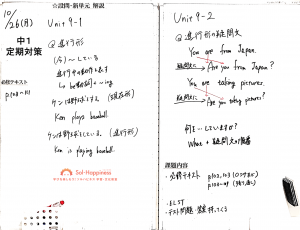 10/26(月)
中1
定期対策
必修テキスト
☆設問・新単元 解説
Unit 9-1
@ 進行形
(今) 〜している
進行中の動作を表す
→ be動詞 + 〜ing
ケンは野球をする (現在形)
Ken plays baseball.
ケンは野球をしている (進行形)
Ken is playing baseball.
Sol-Happiness
Unit 9-2
@ 進行形の疑問文
You are from Japan.
疑問文 Are you from Japan?
You are taking pictures.
疑問文 Are you taking pictures?
何を〜していますか?
What + 疑問文の語順
課題内容
・必修テキスト
・テスト問題・